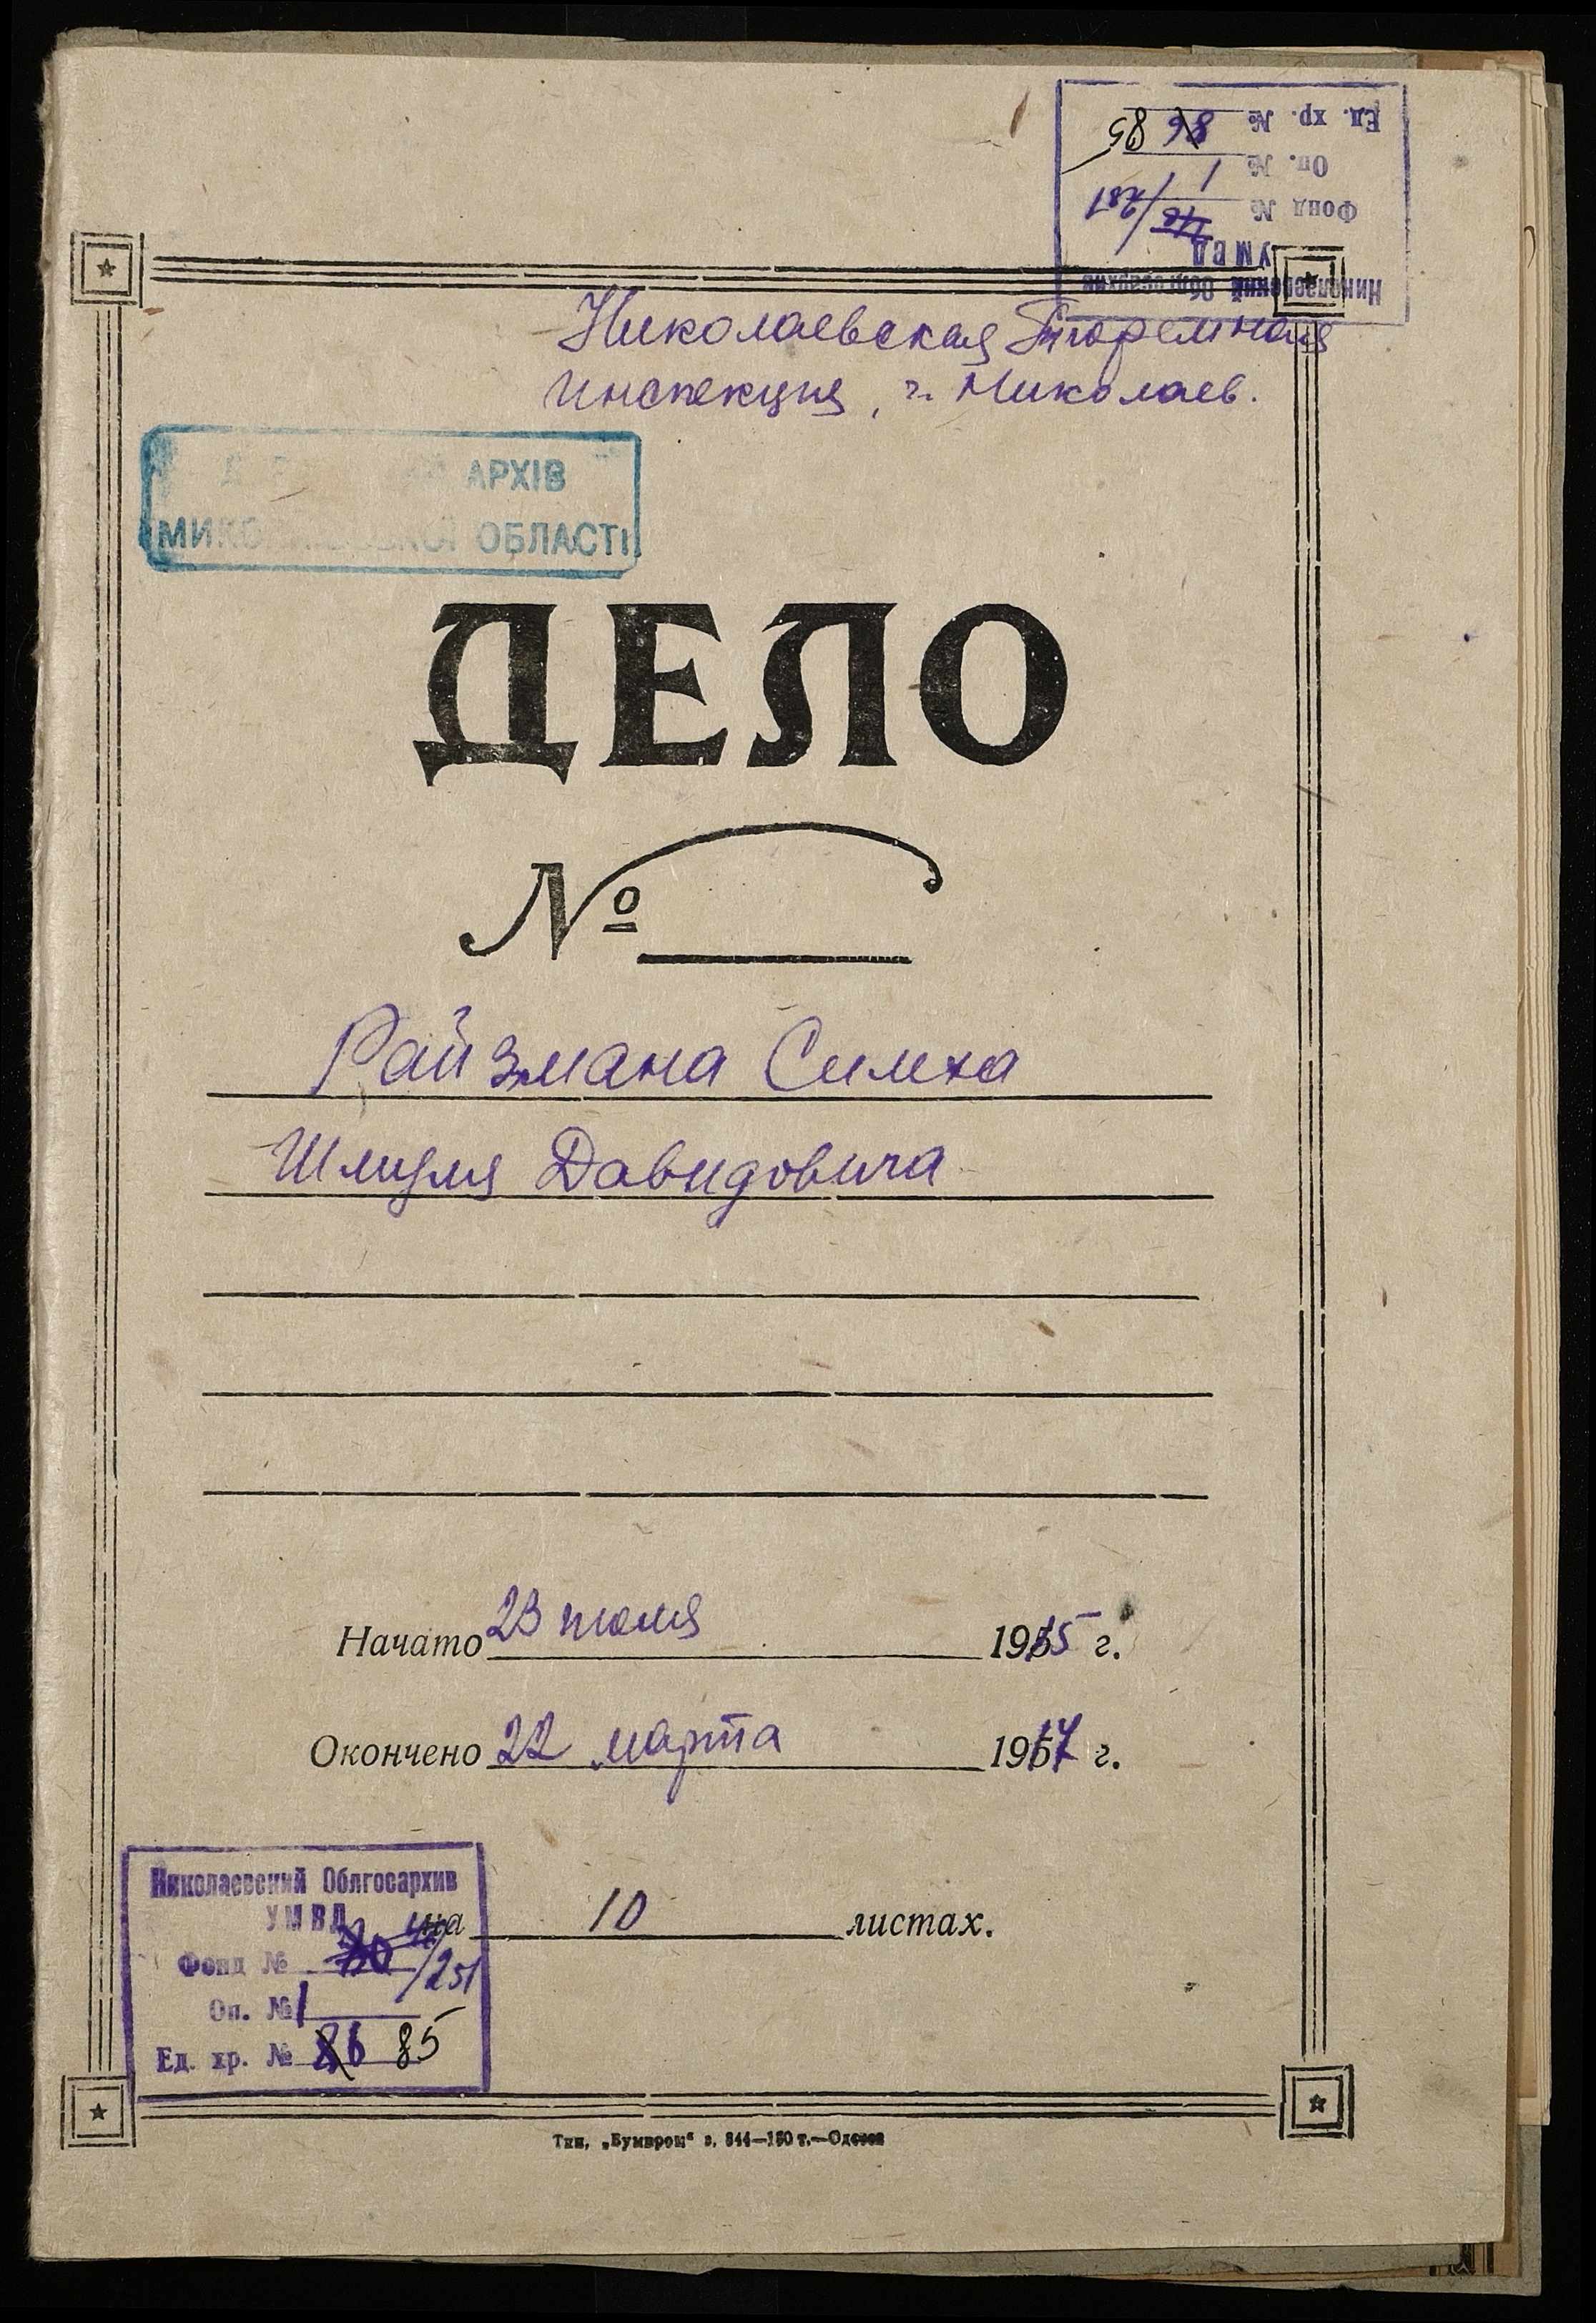 Ед. хр. № 86 85
Оп. № 1
Фонд №
УМВД
Николаевский Облгосархив
Николаевская Тюремная
инспекция, г. Николаев.
АРХІВ
МИКОЛАЇВСЬКОЇ ОБЛАСТІ
ДЕЛО
№
Райзмана Симха
Шмуля Давидовича
Начато 23 июля 1915 г.
Окончено 22 марта 1917 г.
на 10 листах.
Николаевский Облгосархив
УМВД
Фонд № /251
Оп. № 1
Ед. хр. № 86 85
Тип. „Бумпром“ з. 844—180 т.—Одесса